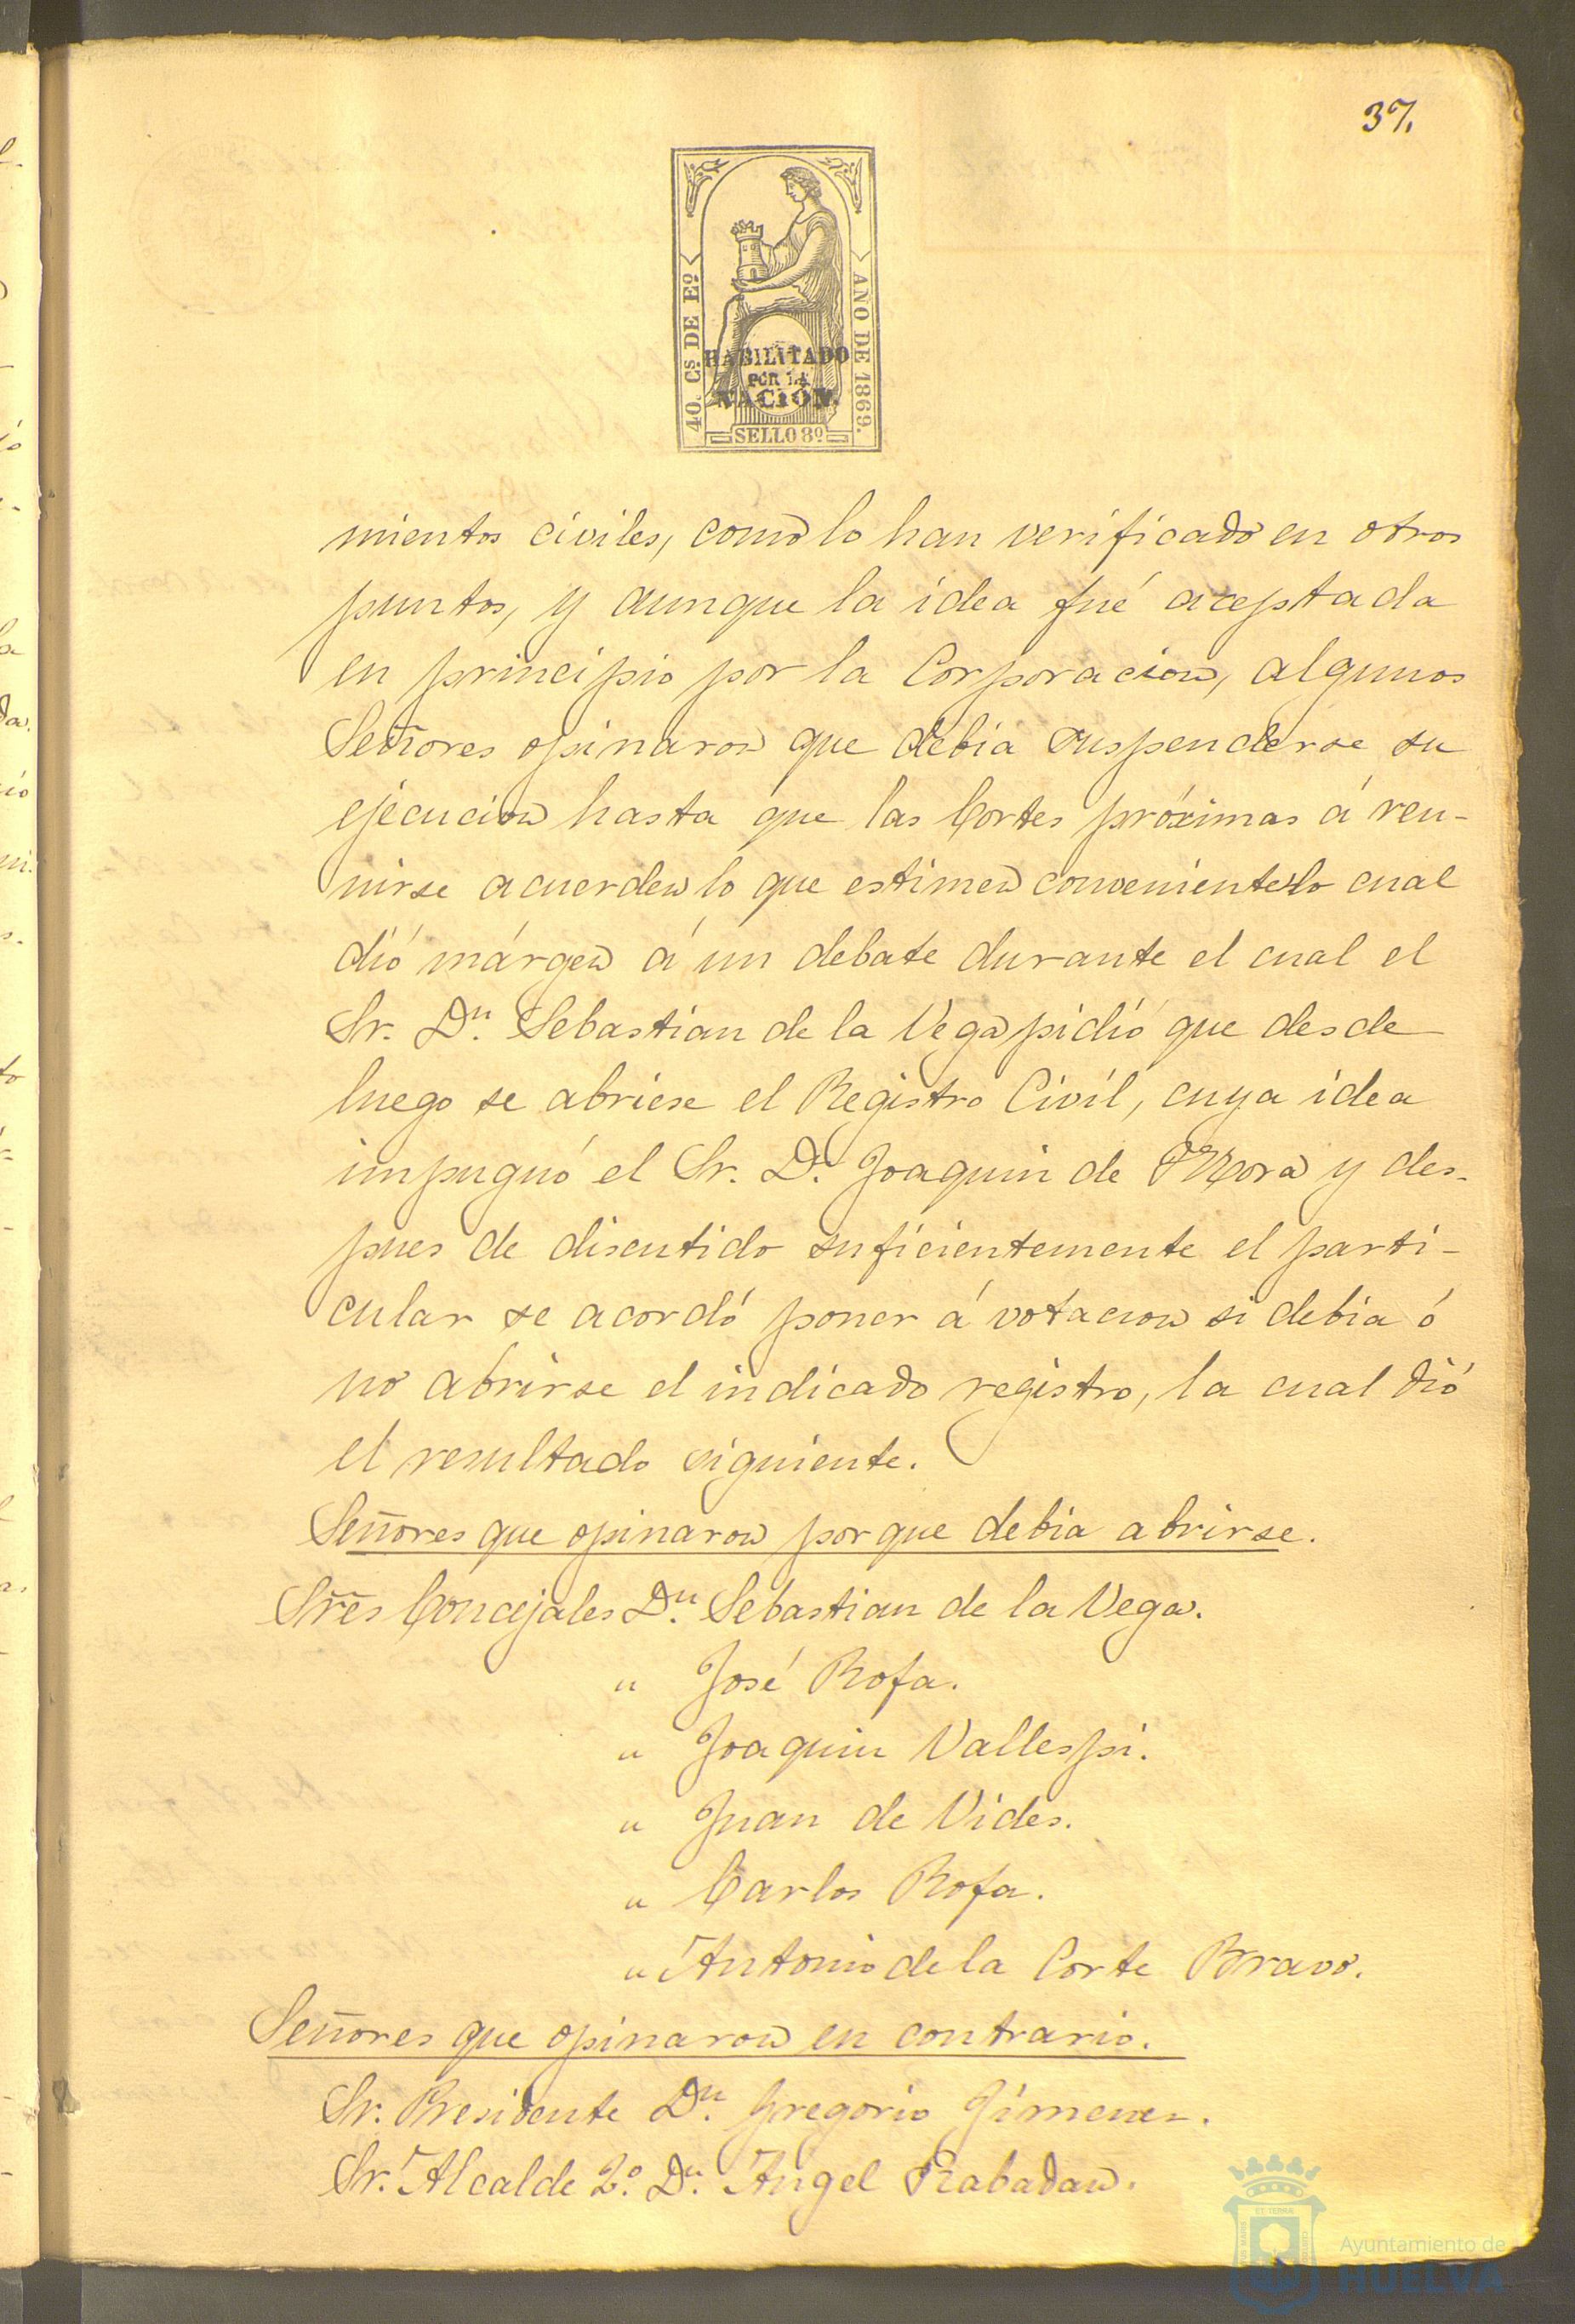 37.
40. Cs. DE Eº.
AÑO DE 1869.
HABILITADO
POR LA
NACION.
SELLO 8º
mientos civiles, como lo han verificado en otros
puntos, y aunque la idea fué aceptada
en principio por la Corporacion, algunos
Señores opinaron que debia suspenderse su
ejecucion hasta que las Cortes próximas á reu-
nirse acuerden lo que estimen conveniente lo cual
dió márgen á un debate durante el cual el
Sr. Dn. Sebastian de la Vega pidió que desde
luego se abriese el Registro Civil, cuya idea
impugnó el Sr. D. Joaquin de Mora y des-
pues de discutido suficientemente el parti-
cular se acordó poner á votacion si debia ó
no abrirse el indicado registro, la cual dió
el resultado siguiente.
Señores que opinaron por que debia abrirse.
Sres Concejales Dn. Sebastian de la Vega.
" José Rofa.
" Joaquin Vallespi.
" Juan de Vides.
" Carlos Rofa.
" Antonio de la Corte Bravo.
Señores que opinaron en contrario.
Sr. Presidente Dn. Gregorio Jimenez.
Sr. Alcalde 2º. Dn. Angel Rabadan.
Ayuntamiento de
HUELVA